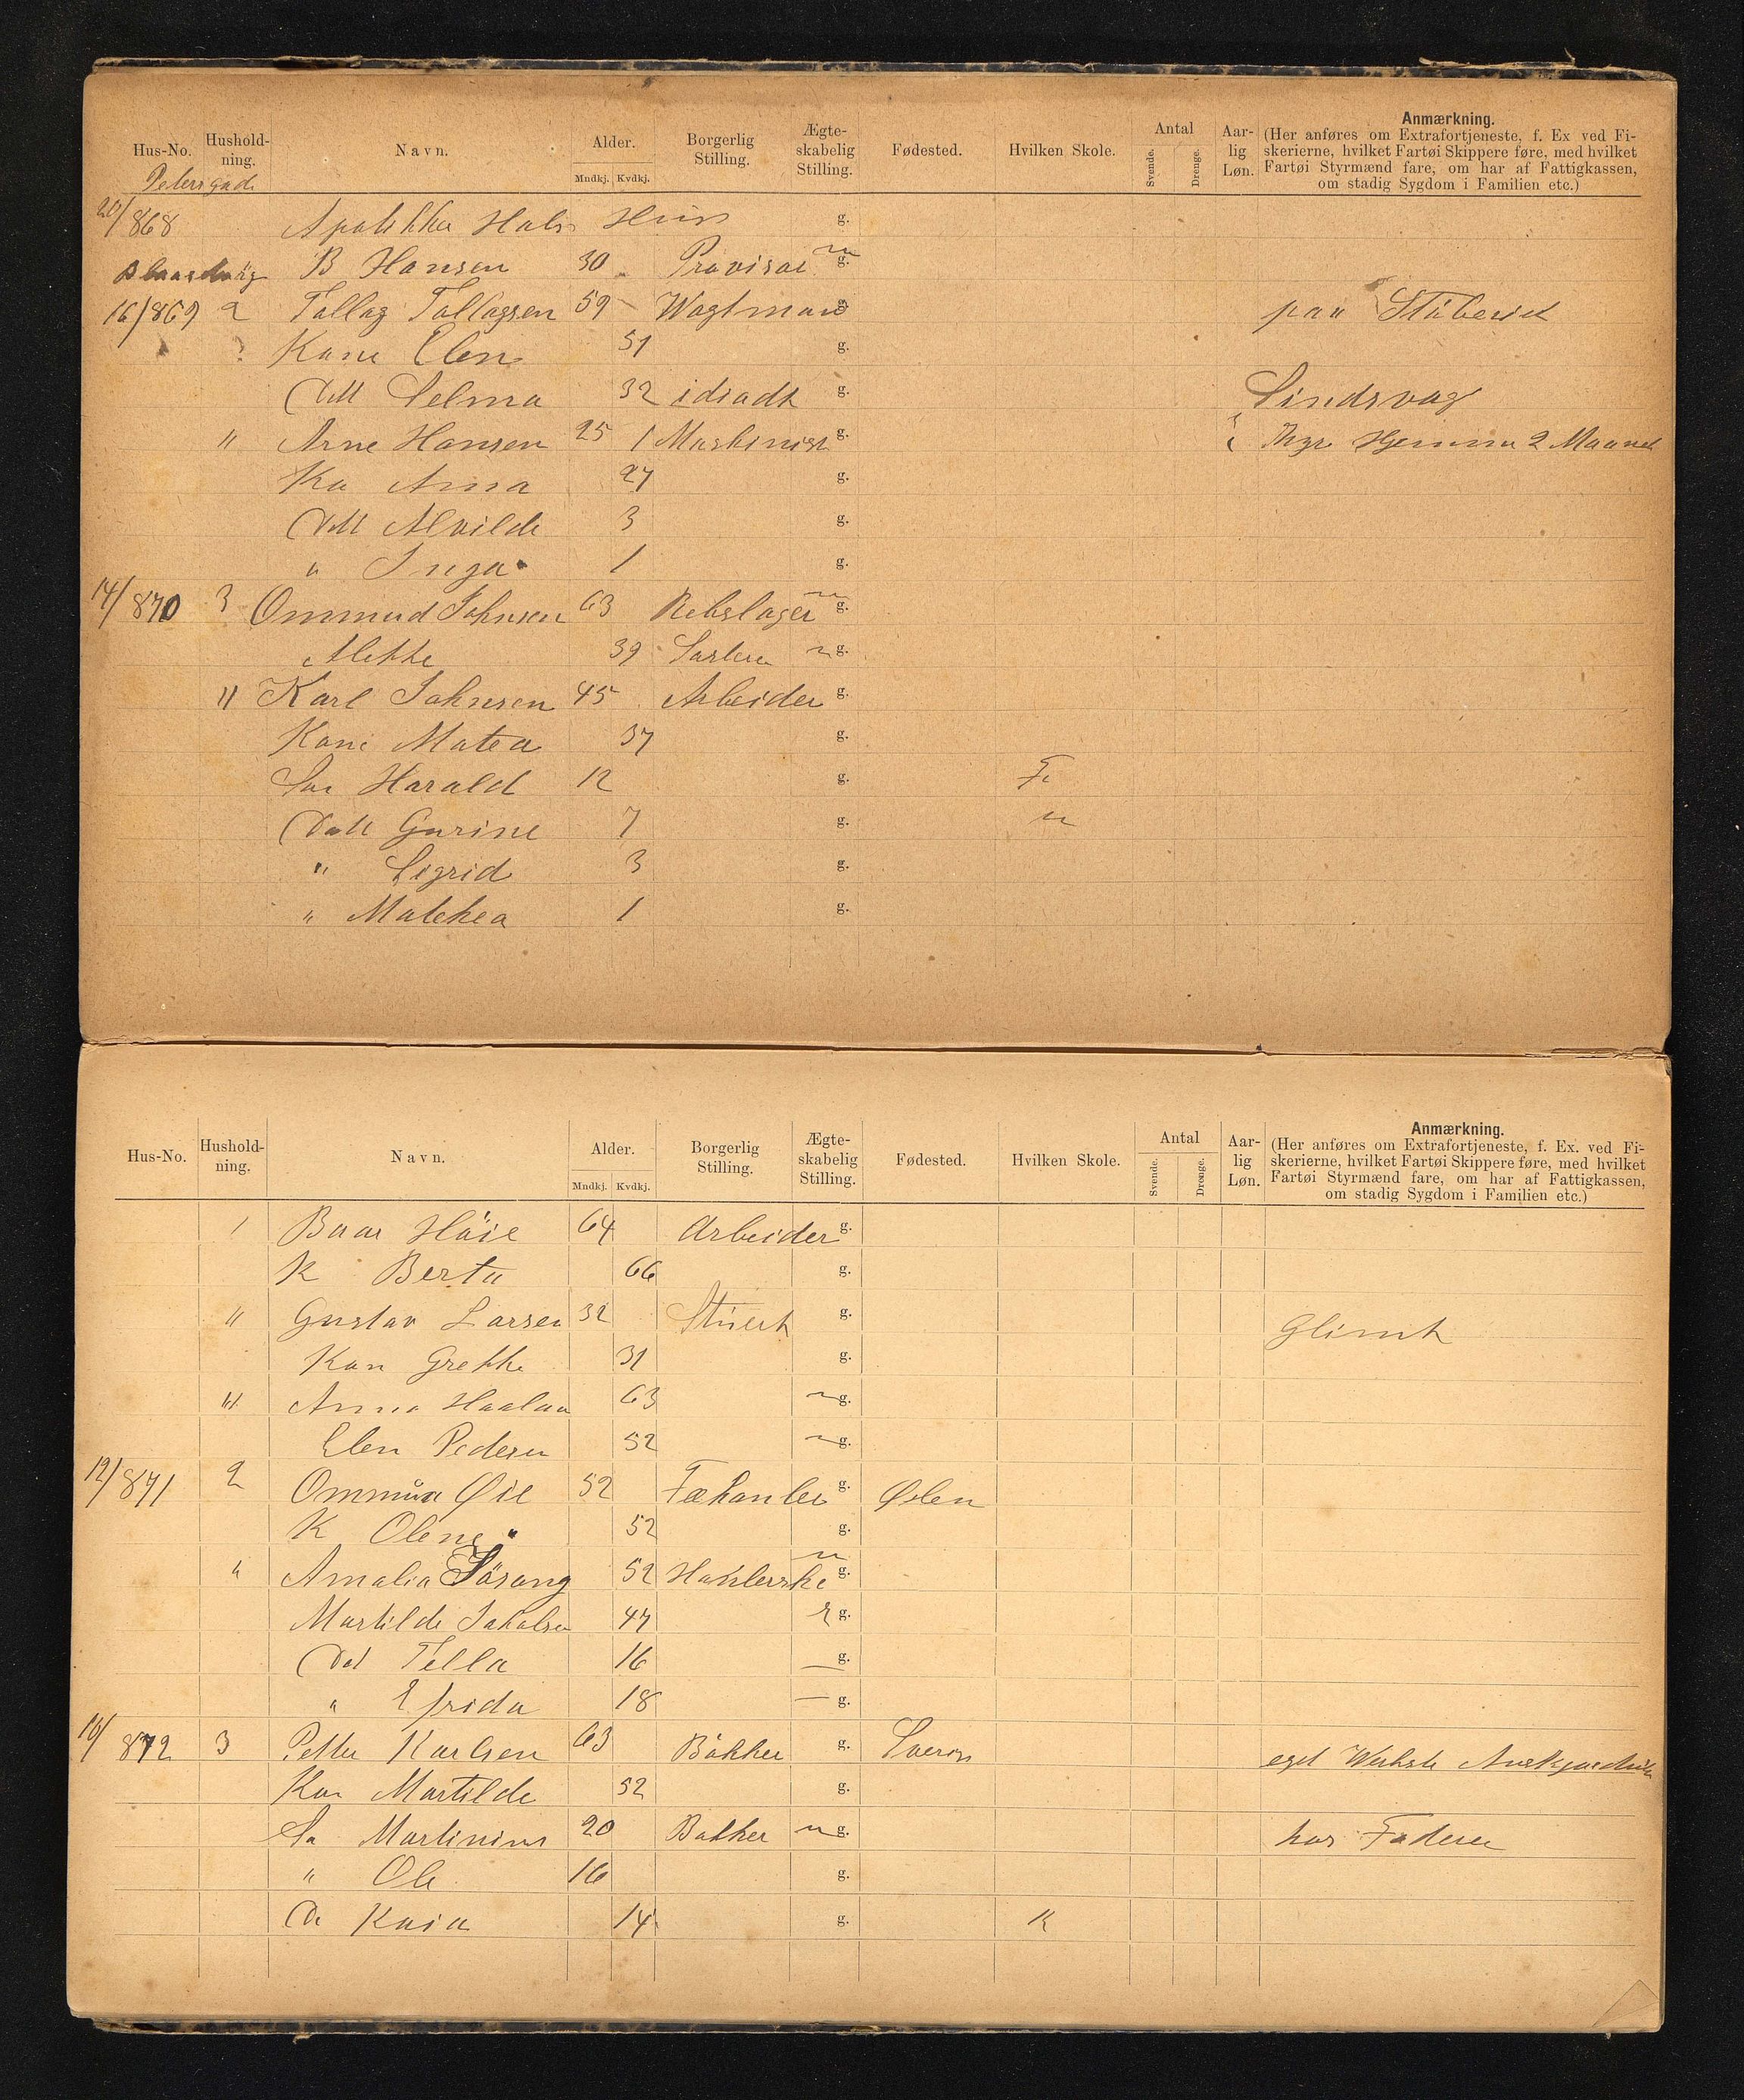 Hus-No. Hushold-ning. Navn. Alder. Mndkj. Kvdkj. Borgerlig Stilling. Ægte-skabelig Stilling. Fødested. Hvilken Skole. Antal Svende. Drenge. Aar-lig Løn. Anmærkning.
(Her anføres om Extrafortjeneste, f. Ex ved Fi-
skerierne, hvilket Fartøi Skippere føre, med hvilket
Fartøi Styrmænd fare, om har af Fattigkassen,
om stadig Sygdom i Familien etc.)
Pedersgade
20/868 Hus g.
B Hansen 30 Provisor n g.
16/869 2 Tollag Tollagsen 59 Wagtmand g. paa
Kone Elen 51 g.
Dtt Selma 32 g. Sindsvag
" Arne Hansen 25 1 Maskinist g. Hjemme 2 Maaned
Ko Anna 27 g.
Dtt Alvilde 3 g.
" Inga 1 g.
14/870 3 Ommund Johnsen 63 Rebslager n g.
Mekke 39 n g.
" Karl Johnsen 45 Arbeider g.
Kone Matea 37 g.
Søn Harald 12 g. F
Datt Gurine 7 g. "
" Sigrid 3 g.
" Mathea 1 g.
Hus-No. Hushold-ning. Navn. Alder. Mndkj. Kvdkj. Borgerlig Stilling. Ægte-skabelig Stilling. Fødested. Hvilken Skole. Antal Svende. Drenge. Aar-lig Løn. Anmærkning.
(Her anføres om Extrafortjeneste, f. Ex. ved Fi-
skerierne, hvilket Fartøi Skippere føre, med hvilket
Fartøi Styrmænd fare, om har af Fattigkassen,
om stadig Sygdom i Familien etc.)
1 Baar Höie 64 Arbeider g.
K Berta 66 g.
" Gustav Larsen 32 Stuert g. Glimt
Kon Grethe 31 g.
"' Anna Haaland 63 n g.
Elen Pedersen 52 n g.
12/871 2 Ommun Øie 52 g. Ølen
K Olene 52 g.
" Amalia Sörang 52 Haklerske n g.
Martilde Jakobsen 47 g.
Dat Tella 16 — g.
" Efrida 18 — g.
10/872 3 Petter Karlsen 63 Bökker g. Sverig eget
Kon Martilde 52 g.
Sø Martinius 20 Bøkker n g. hos Faderen
" Ole 16 g.
Da Kaia 14 g. K